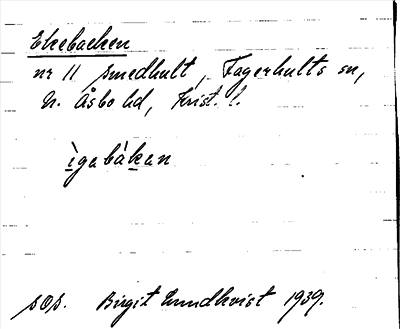 Ekebacken
nr 11 Smedhult, Fagerhults sn,
N. Åsbo hd, Krist. l.
ìgabàkan
sOp. Birgit Lundkvist 1939.